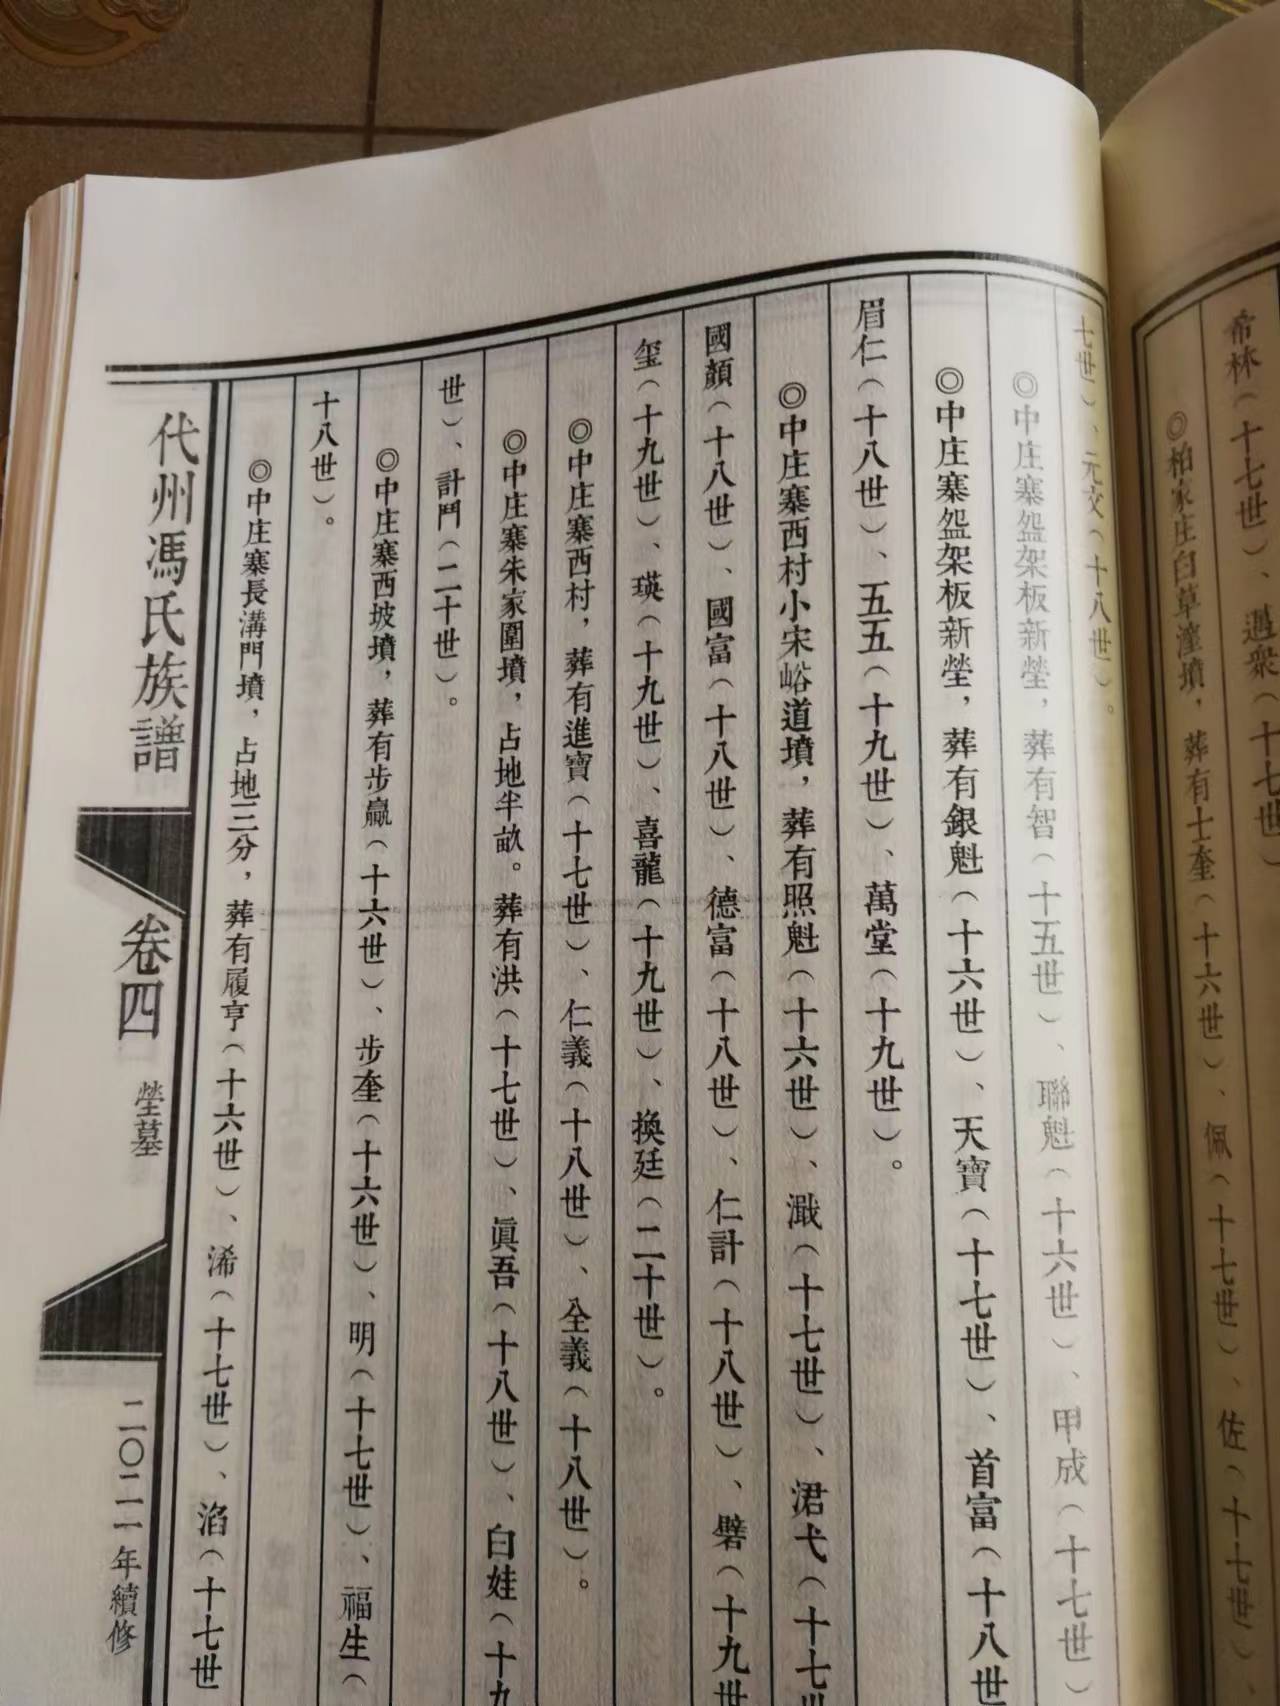 希林（十七世）、遇衆（十七世
◎柏家庄白草潼墳，葬有士奎（十六世）、佩（十七世）、佐（十七世）、
七世）、元文（十八世）。
◎中庄寨盌架板新塋，葬有智（十五世）、聯魁（十六世）、甲成（十七世）
◎中庄寨盌架板新塋，葬有銀魁（十六世）、天寶（十七世）、首富（十八世
眉仁（十八世）、五五（十九世）、萬堂（十九世）。
◎中庄寨西村小宋峪道墳，葬有照魁（十六世）、濈（十七世）、涒弋（十七世
國顏（十八世）、國富（十八世）、德富（十八世）、仁計（十八世）、礕（十九世
玺（十九世）、瑛（十九世）、喜龍（十九世）、換廷（二十世）。
◎中庄寨西村，葬有進寶（十七世）、仁義（十八世）、全義（十八世）。
◎中庄寨朱家圍墳，占地半畝。葬有洪（十七世）、眞吾（十八世）、白娃（十九
世）、計鬥（二十世）。
◎中庄寨西坡墳，葬有步贏（十六世）、步奎（十六世）、明（十七世）、福生（
十八世）。
◎中庄寨長溝門墳，占地三分，葬有履亨（十六世）、浠（十七世）、淊（十七世
代州馮氏族譜
卷四
塋墓
二〇二一年續修